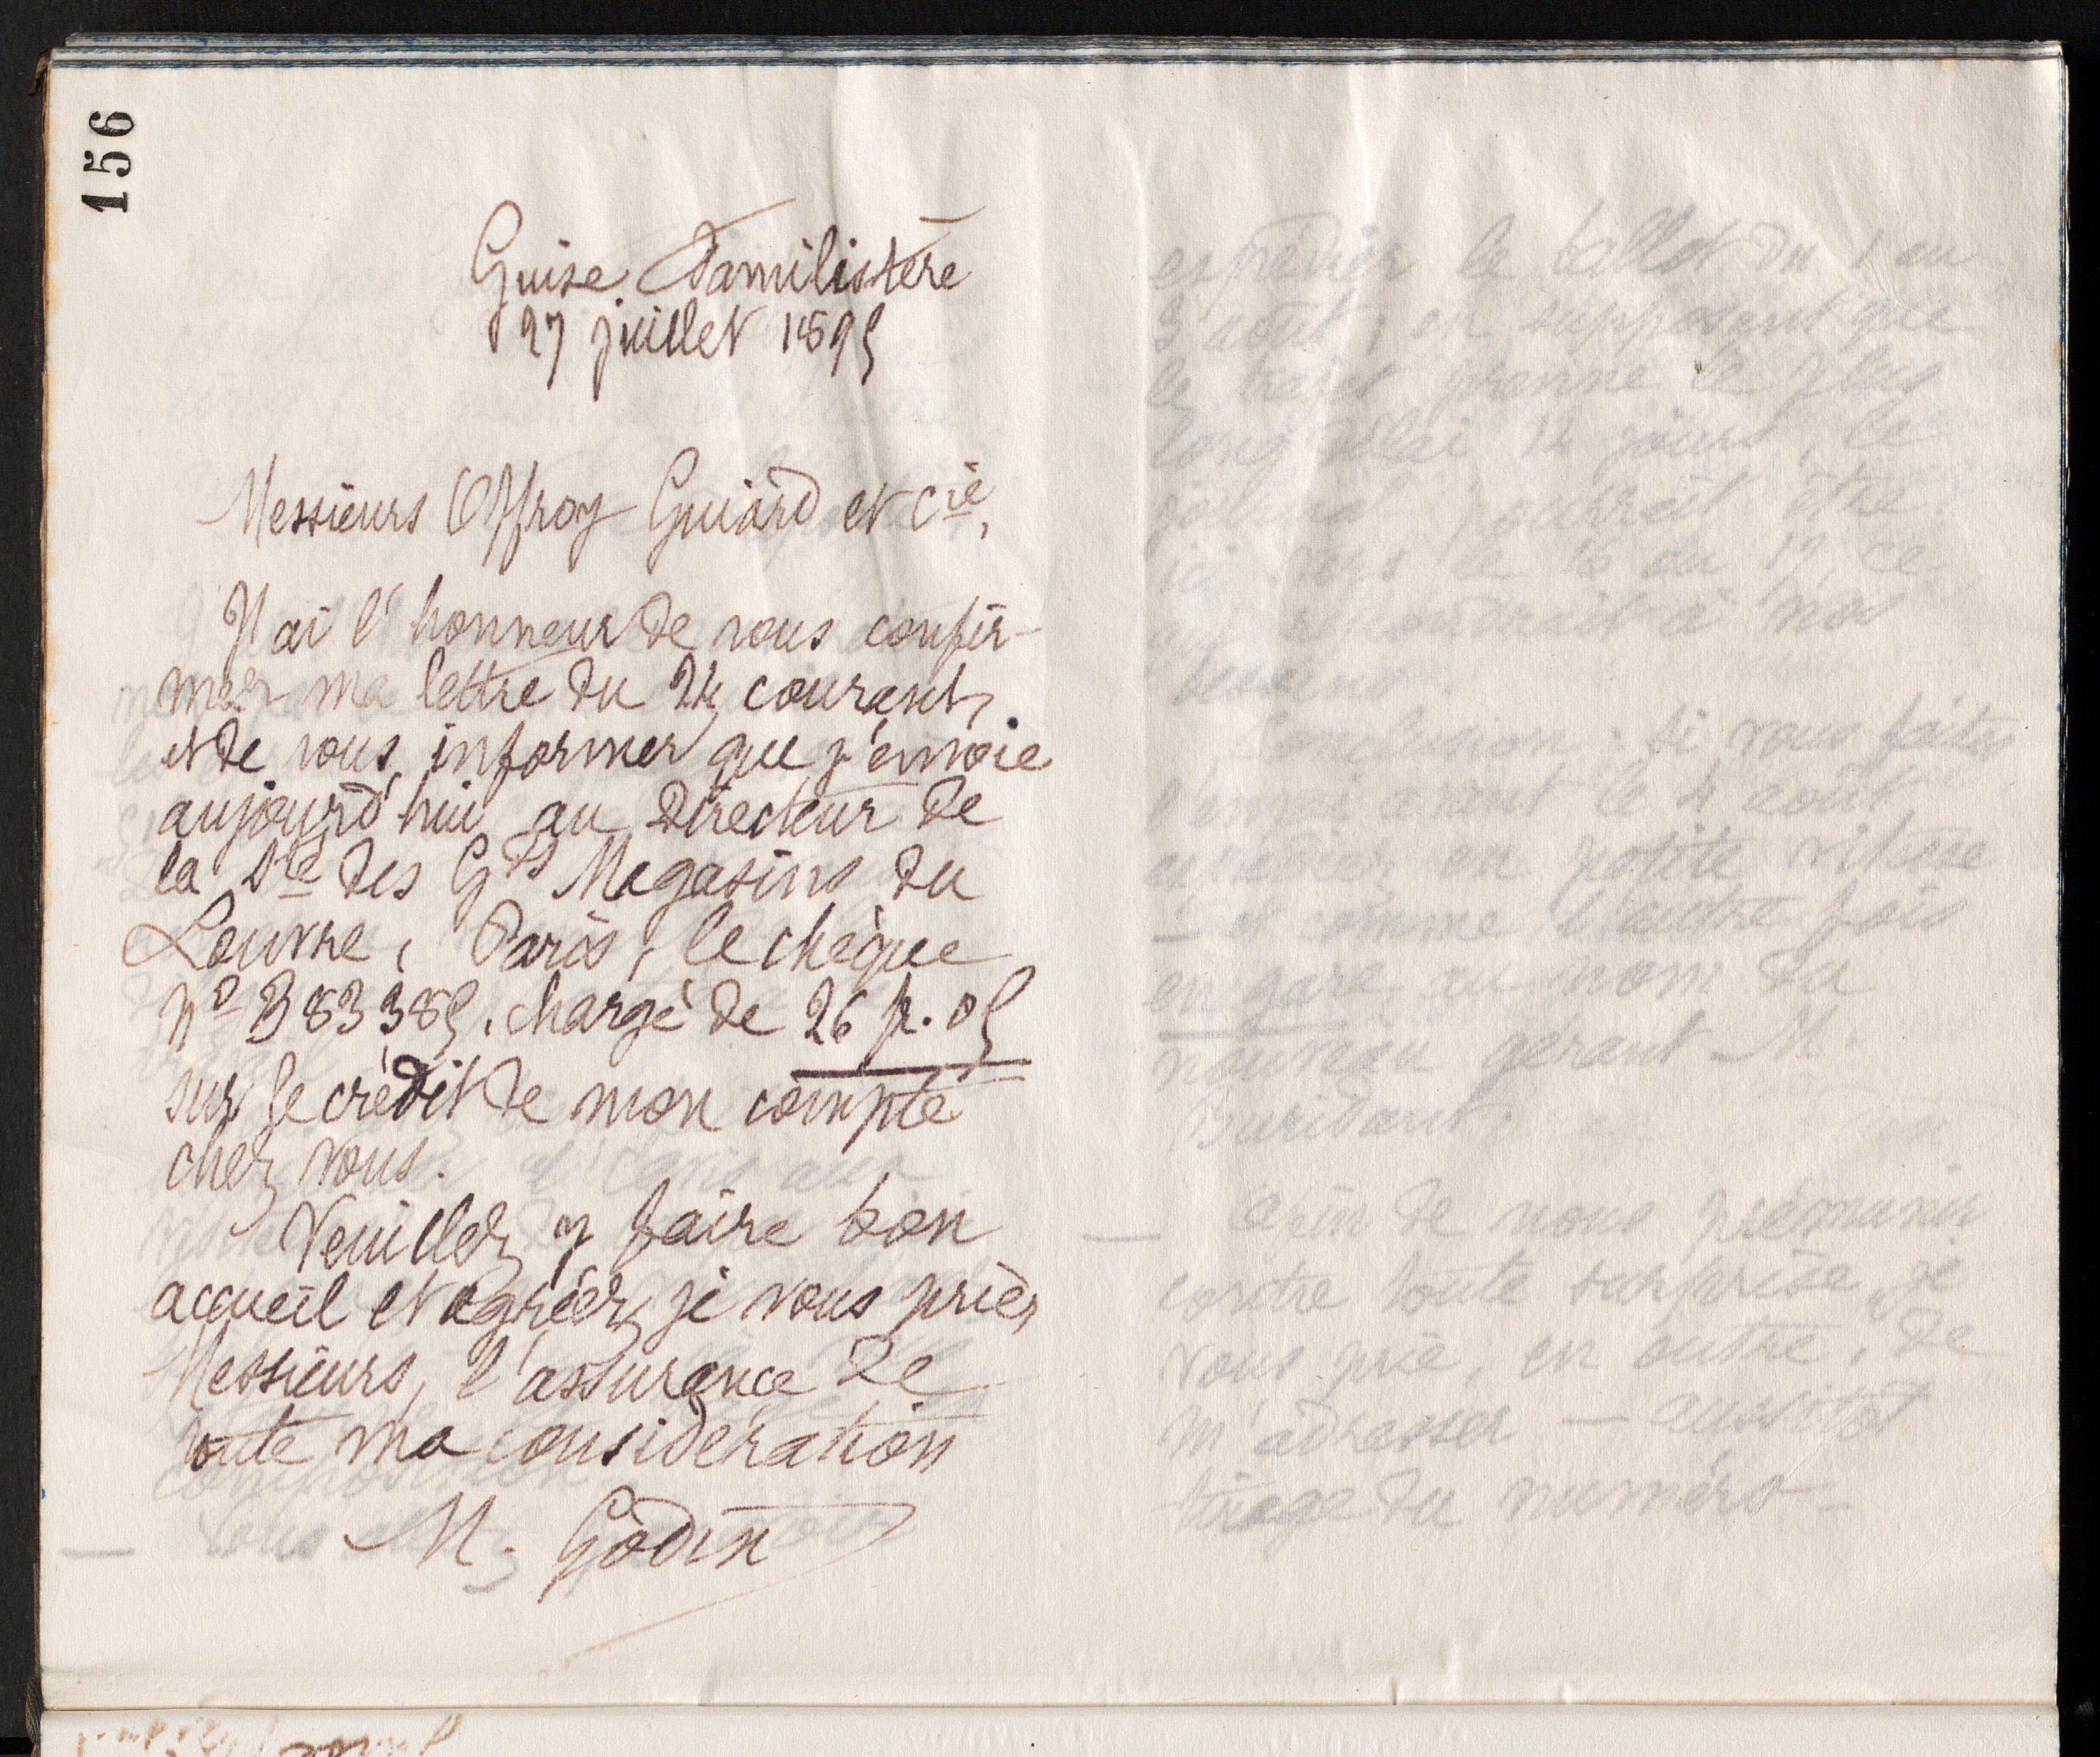 156
Guise Familistère
27 juillet 1895
Messieurs Offroy Guiard et Cie,
J'ai l'honneur de vous confir-
mer ma lettre du 24 courant,
et de vous informer que j'envoie
aujourd'hui au Directeur de
la Sté des Gds Magasins du
Louvre, Paris, le chèque
No B 83385, chargé de 26 f. 05
sur le crédit de mon compte
chez vous.
Veuillez y faire bon
accueil et agréer, je vous prie,
Messieurs, l'assurance de
toute ma considération
M. Godin
le ballot du 1 au
3 août, en supposant que
le trajet prenne le plus
long délai 14 jours, le
pourrait être
ici vers le 16 ou 17, ce
à nos
besoins.
si vous faites
l'envoi avant le 4 août
en petite vitesse
— et comme l'autre fois
en gare au nom du
nouveau gérant M.
Buridant.
— Afin de nous prémunir
contre toute surprise, je
vous prie, en outre, de
m'adresser — aussitôt
tirage du numéro —